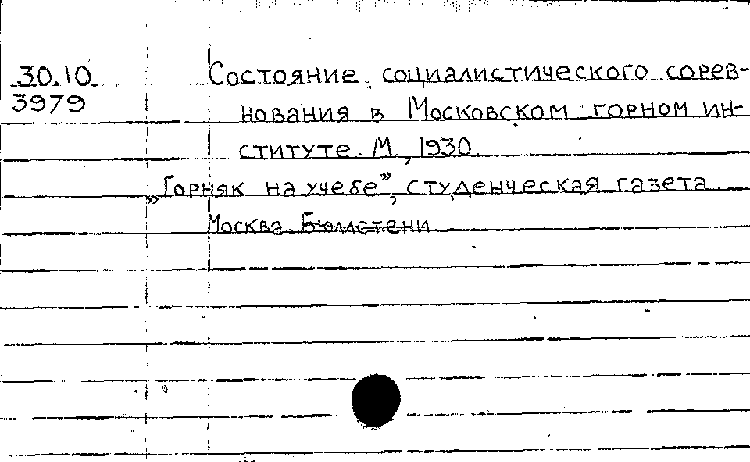 30.10 Состояние социалистического сорев-
3979 нования в Московском горном ин-
ституте. М., 1930.
„Горняк на учебе”, студенческая газета
Москва Бюллетени